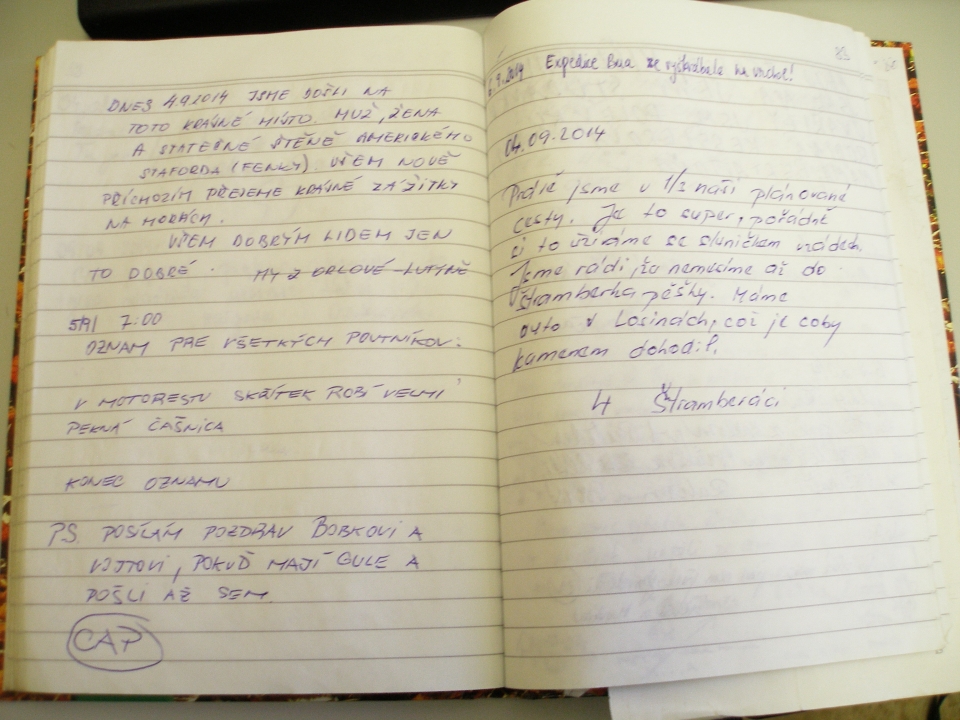 DNES 4.9.2014 JSME DOŠLI NA
TOTO KRÁSNÉ MÍSTO. MUŽ, ŽENA
A STATEČNÉ ŠTĚNĚ AMERICKÉHO
STAFORDA (FENKY). VŠEM NOVĚ
PŘÍCHOZÍM PŘEJEME KRÁSNÉ ZÁŽITKY
NA HORÁCH.
VŠEM DOBRÝM LIDEM JEN
TO DOBRÉ. MY Z ORLOVÉ-LUTYNĚ
5/9/ 7:00
OZNAM PRE VŠETKÝCH POUTNÍKOV:
V MOTORESTU SKŘÍTEK ROBÍ VELMI
PEKNÁ ČAŠNICA
KONEC OZNAMU
PS. POSÍLÁM POZDRAV BOBKOVI A
VOJTOVI, POKUĎ MAJÍ GULE A
DOŠLI AŽ SEM.
CAP
83
.9.2014 Expedice se vyškrábala na vrchol!
04.09.2014
Právě jsme v 1/3 naší plánované
cesty. Je to super, pořádně
si to užíváme se sluníčkem v zádech.
Jsme rádi, že nemusíme až do
Štramberka pěšky. Máme
auto v Losinách, což je coby
kamenem dohodil.
4 Štramberáci